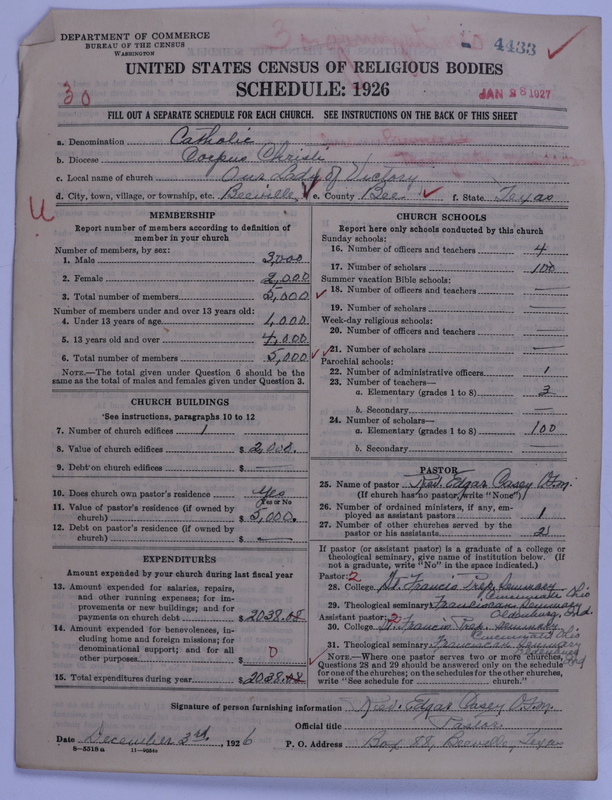 DEPARTMENT OF COMMERCE
BUREAU OF THE CENSUS
WASHINGTON
4433
UNITED STATES CENSUS OF RELIGIOUS BODIES
SCHEDULE: 1926
30
JAN 28 1927
FILL OUT A SEPARATE SCHEDULE FOR EACH CHURCH. SEE INSTRUCTIONS ON THE BACK OF THIS SHEET
a. Denomination Catholic
b. Diocese Corpus Christi
c. Local name of church Our Lady of Victory
d. City, town, village, or township, etc. Beeville e. County Bee f. State Texas
MEMBERSHIP
Report number of members according to definition of member in your church
Number of members, by sex:
1. Male 3,000
2. Female 2,000
3. Total number of members 5,000
Number of members under and over 13 years old:
4. Under 13 years of age 1,000
5. 13 years old and over 4,000
6. Total number of members 5,000
NOTE.—The total given under Question 6 should be the same as the total of males and females given under Question 3.
CHURCH BUILDINGS
See instructions, paragraphs 10 to 12
7. Number of church edifices 1
8. Value of church edifices $ 2,000.
9. Debt on church edifices $ —
10. Does church own pastor's residence Yes
Yes or No
11. Value of pastor's residence (if owned by
church) $ 5,000.
12. Debt on pastor's residence (if owned by
church) $ —
EXPENDITURES
Amount expended by your church during last fiscal year
13. Amount expended for salaries, repairs,
and other running expenses; for im-
provements or new buildings; and for
payments on church debt $ 2038.08
14. Amount expended for benevolences, in-
cluding home and foreign missions; for
denominational support; and for all
other purposes $ 0
15. Total expenditures during year $ 2038.08
CHURCH SCHOOLS
Report here only schools conducted by this church
Sunday schools:
16. Number of officers and teachers 4
17. Number of scholars 100
Summer vacation Bible schools:
18. Number of officers and teachers —
19. Number of scholars —
Week-day religious schools:
20. Number of officers and teachers —
21. Number of scholars —
Parochial schools:
22. Number of administrative officers 1
23. Number of teachers—
a. Elementary (grades 1 to 8) 3
b. Secondary —
24. Number of scholars—
a. Elementary (grades 1 to 8) 100
b. Secondary
PASTOR
25. Name of pastor Rev. Edgar Casey O.F.M.
(If church has no pastor, write "None")
26. Number of ordained ministers, if any, em-
ployed as assistant pastors 1
27. Number of other churches served by the
pastor or his assistants 2
If pastor (or assistant pastor) is a graduate of a college or theological seminary, give name of institution below. (If not a graduate, write "No" in the space indicated.)
Pastor: 2
28. College St. Francis Prep. Seminary
Cincinnati Ohio
29. Theological seminary Franciscan Seminary
Oldenburg, Ind.
Assistant pastor: 2
30. College St. Francis Prep. Seminary
Cincinnati Ohio
31. Theological seminary Franciscan Seminary
NOTE.—Where one pastor serves two or more churches, Questions 28 and 29 should be answered only on the schedule for one of the churches; on the schedules for the other churches, write "See schedule for ________ church."
Signature of person furnishing information Rev. Edgar Casey O.F.M.
Official title Pastor
Date December 3rd, 1926 P. O. Address Box 88, Beeville, Texas